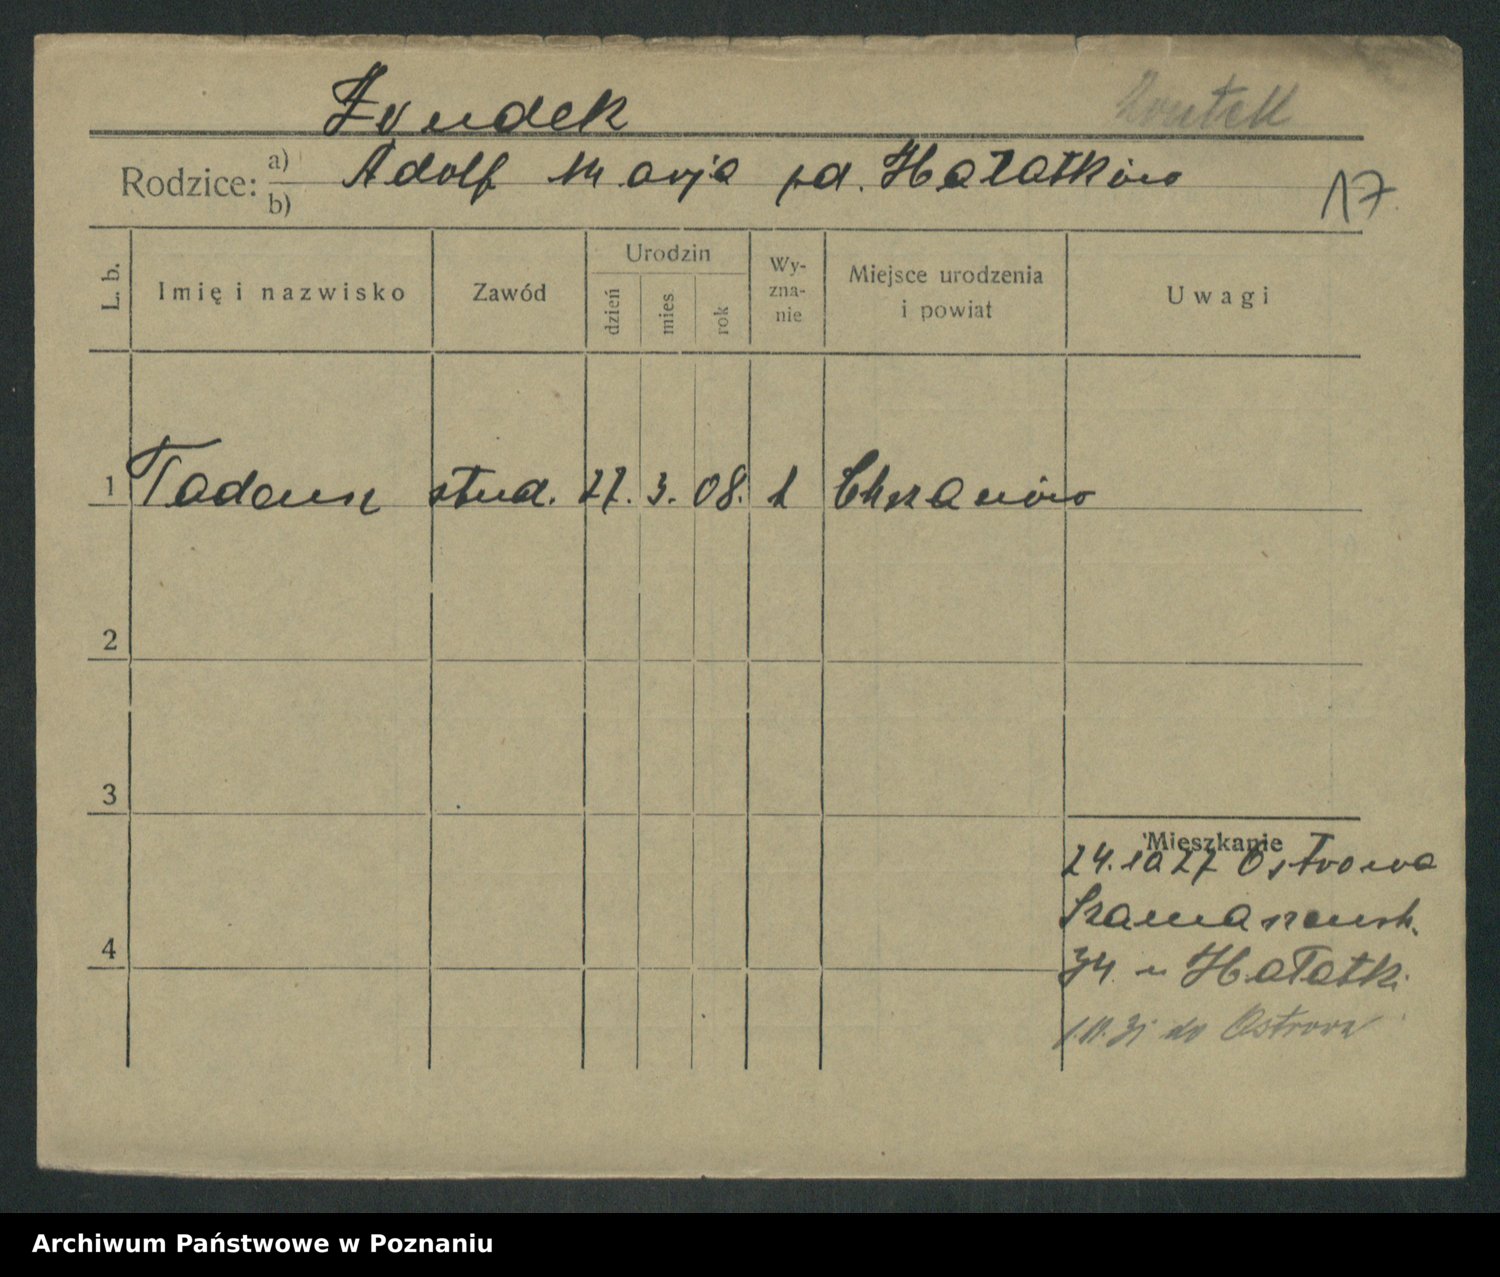 Zondek
Rodzice: a) b) Adolf Marja z d. Hałatków
17
L. b.
Imię i nazwisko
Zawód
Urodzin
dzień
mies
rok
Wy-
zna-
nie
Miejsce urodzenia
i powiat
Uwagi
1 Tadeusz stud. 27. 3. 08. Chrzanów
2
3
Mieszkanie
24.10 27 Ostrowa
Szamarzewsk.
34 u Hałatki
4
do Ostrowa
Archiwum Państwowe w Poznaniu